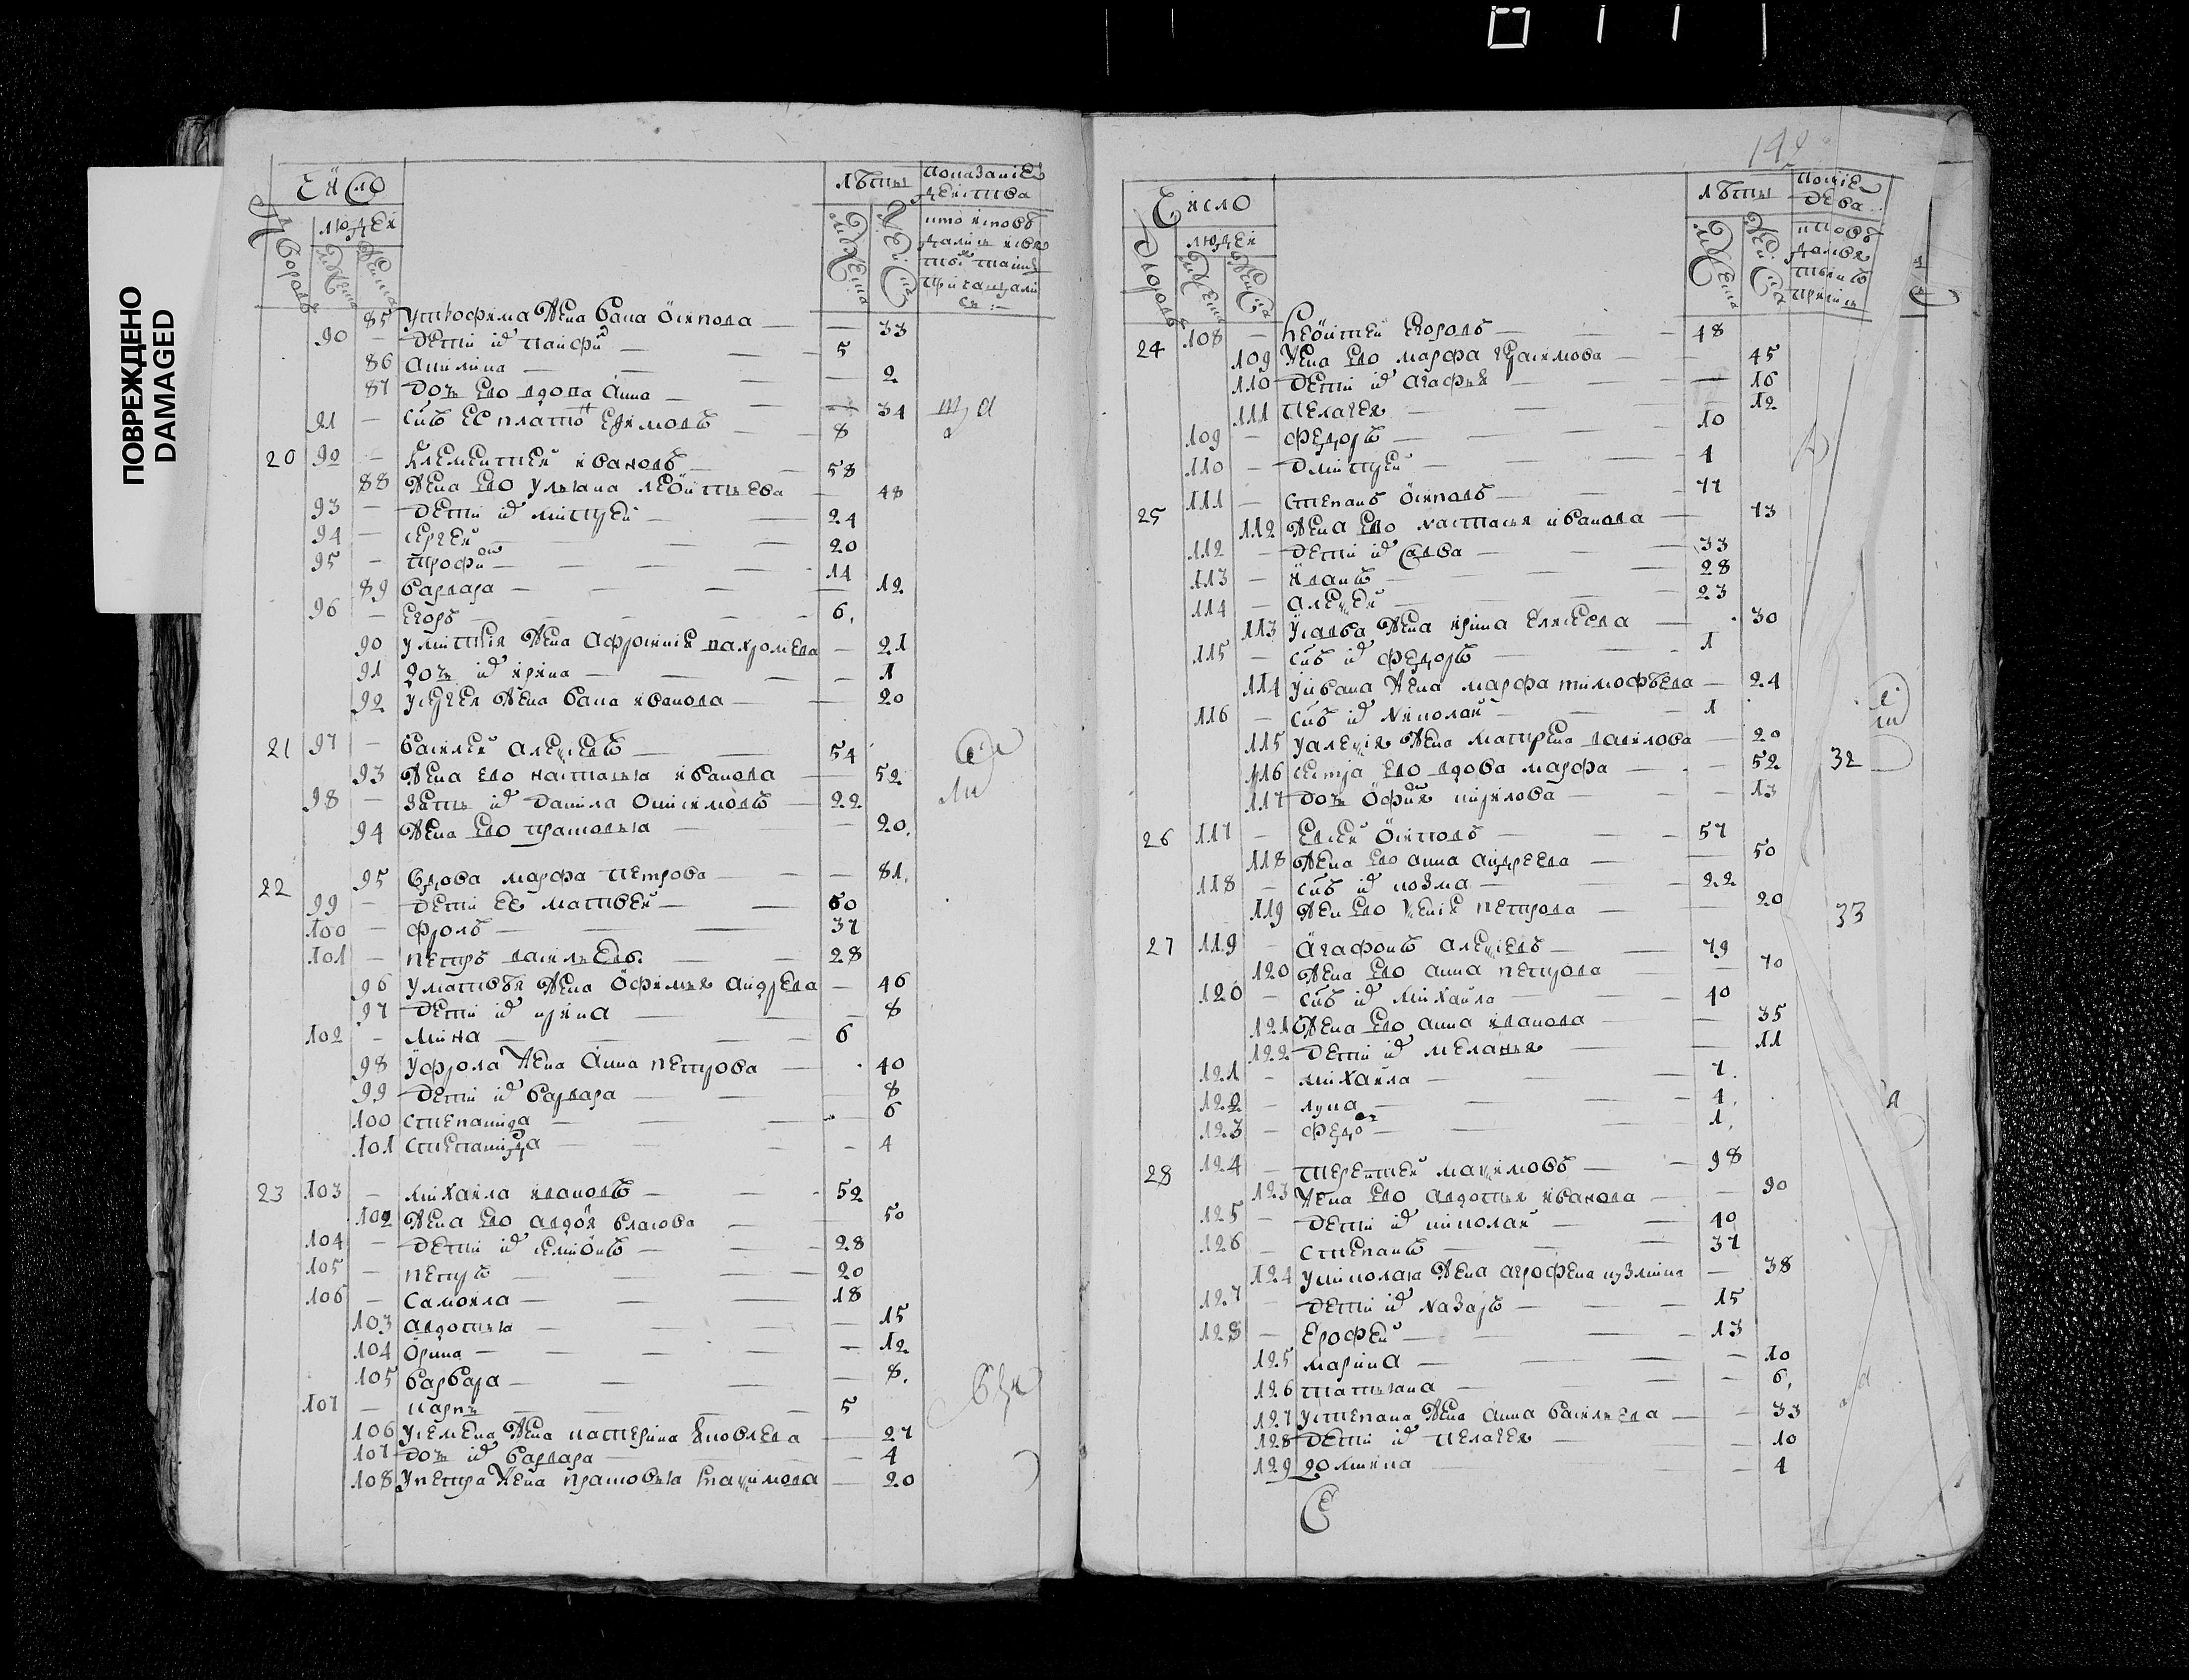 ПОВРЕЖДЕНО
DAMAGED
Число
Дворовъ
людей
лѣты
показаніе
действа
85 Утрофима жена Ѳекла Осипова — 33
90 — дети их 5
86 Акилина — 2
87 дочь ево вдова Анна — 34
91 — сынъ ее Ефимовъ 8
20 92 — Климентей Ивановъ 58
88 жена ево Ульяна Леонтьева — 48
93 — дети их Дмитрей 24
94 — Сергей 20
95 — Трофим 14
89 Варвара — 12
96 — Егоръ 6
90 Умитрия жена Афросинья Пахомова — 21
91 дочь их Ирина — 1
92 Усергея жена Анна Иванова — 20
21 97 — Василей Алексеевъ 54
93 жена ево Настасья Иванова — 52
98 — зять их Данила Онисимовъ 22
94 жена ево Прасковья — 20
22 95 Вдова Марфа Петрова — 81
99 — дети ее Матвей 60
100 — Фролъ 37
101 — Петръ Васильевъ 28
96 Уматвея жена Офимья Андреева — 46
97 дети их Ирина — 8
102 — Мина 6
98 Уфрола жена Анна Петрова — 40
99 дети их Варвара — 8
100 Степанида — 6
101 Степанида — 4
23 103 — Михайла Ивановъ 52
102 жена ево Авдотья Власова — 50
104 — дети их Семионъ 28
105 — Петръ 20
106 — Самойла 18
103 Авдотья — 15
104 Орина — 12
105 Варвара — 8
107 — Карпъ 5
106 Усемена жена Катерина Яковлева — 27
107 дочь их Варвара — 4
108 Упетра жена Прасковья Максимова — 20
144
Число
Дворовъ
людей
лѣты
24 108 — Леонтей Егоровъ 48
109 жена ево Марфа Герасимова — 45
110 дети их Агафья — 16
111 Пелагея — 12
109 — Федоръ 10
110 — Дмитрей 4
25 111 — Степанъ Осиповъ 77
112 жена ево Настасья Иванова — 73
112 — дети их Савва 33
113 — Иванъ 28
114 — Алексей 23
113 Усавва жена Ирина Елисеева — 30
115 — сынъ их Федоръ 1
114 Уивана жена Марфа Тимофѣева — 24
116 — сынъ их Николай 1
115 Уалексия жена Матрена Данилова — 20
116 сестра ево вдова Марфа — 52 32
117 дочь Софья Кирилова — 13
26 117 — Евсей Осиповъ 57
118 жена ево Анна Андреева — 50
118 — сынъ их Козма 22
119 жена ево Ксения Петрова — 20 33
27 119 — Агафонъ Алексеевъ 79
120 жена ево Анна Петрова — 70
120 — сынъ их Михайла 40
121 жена ево Анна Иванова — 35
122 дети их Меланья — 11
121 — Михайла 7
122 — Лука 4
123 — Федор 1
28 124 — Терентей Максимовъ 98
123 жена ево Авдотья Иванова — 90
125 — дети их Николай 40
126 — Степанъ 37
124 Униколая жена Агрофена Кузмина — 38
127 дети их Назаръ 15
128 — Ерофей 13
125 Марина — 10
126 Татьяна — 6
127 Устепана жена Анна Васильева — 33
128 дети их Пелагея — 10
129 Домнина — 4